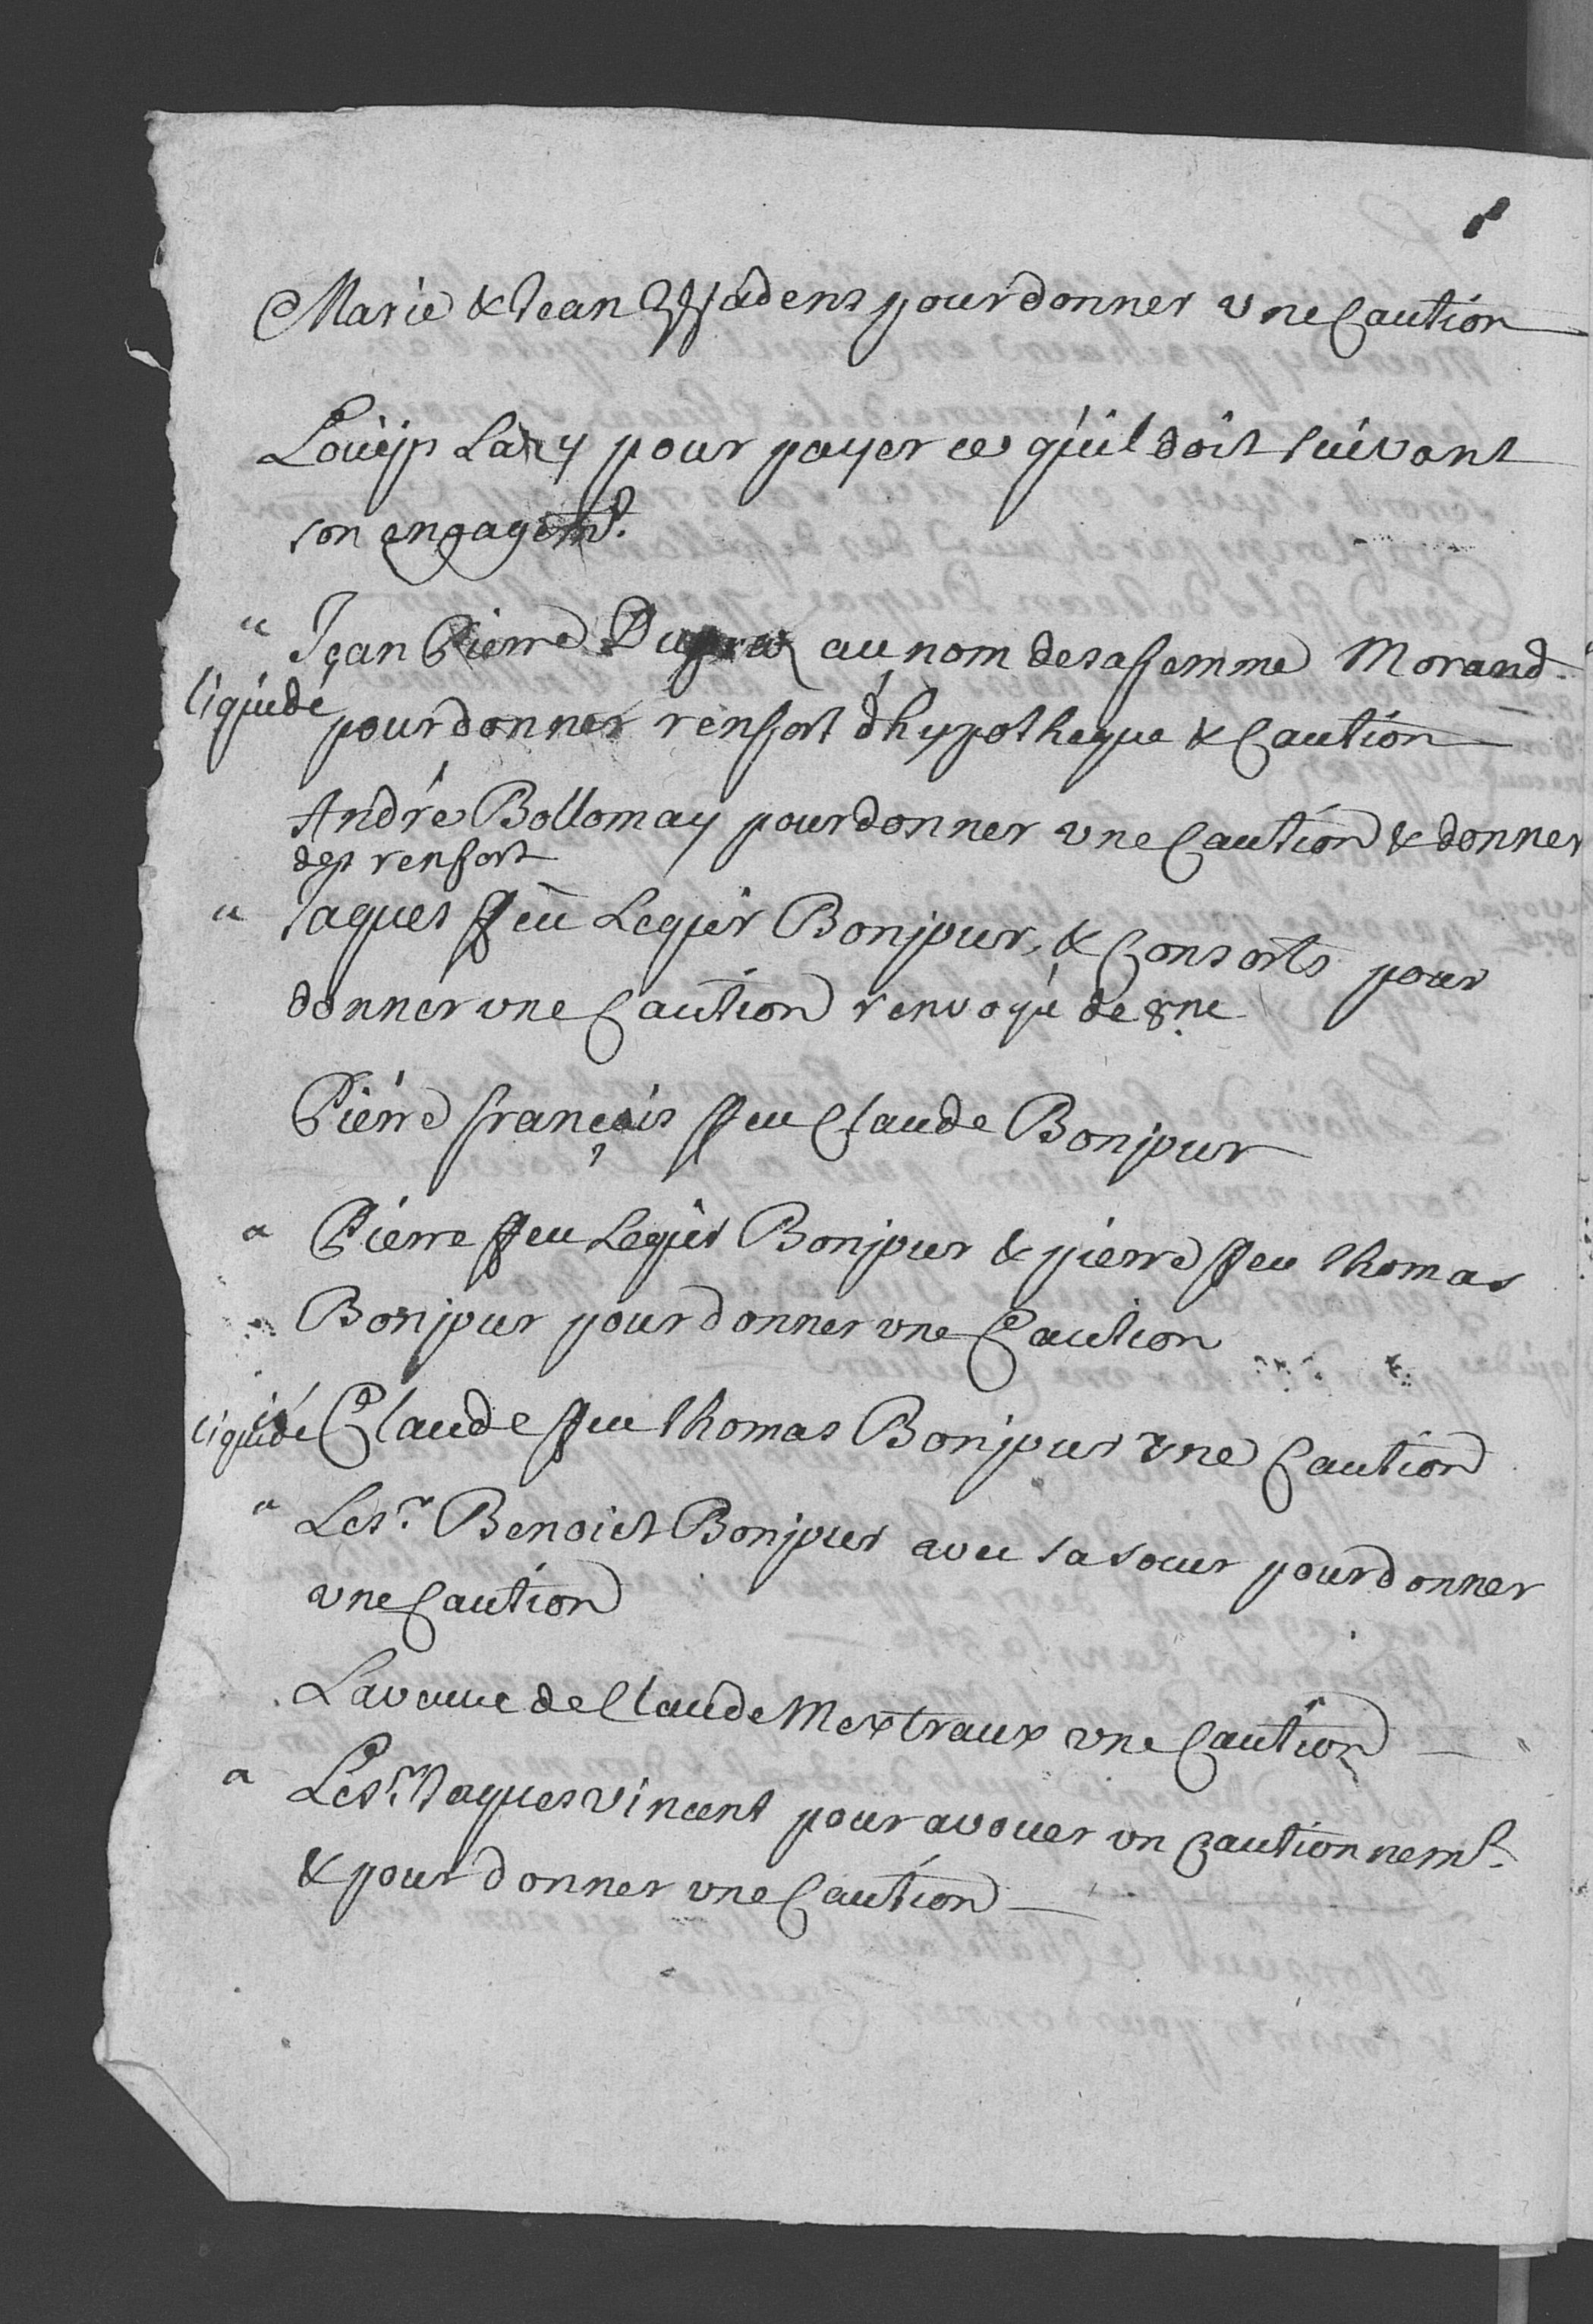 Marie & Jean Wadens pour donner une Caution
Louys Lary pour payer ce qu'il doit suivant
son engagemt.
" Jean Pierre Dupraz au nom de sa femme Morand
liquidé pour donner renfort d'hypotheque & Caution
André Bollomay pour donner une Caution & donner
des renfort
" Jaques ffeu Legier Bonjour, & Consorts pour
donner une Caution renvoyé de 8ne
Pierre françois ffeu Claude Bonjour
a Pierre ffeu Legier Bonjour & pierre ffeu Thomas
Bonjour pour donner une Caution
liquidé Claude ffeu Thomas Bonjour une Caution
" Le sr. Benoict Bonjour avec sa soeur pour donner
une Caution
La veuve de Claude Mextraux une Caution
a Le sr. Jaques Vincent pour avouer un Cautionnemt.
& pour donner une Caution